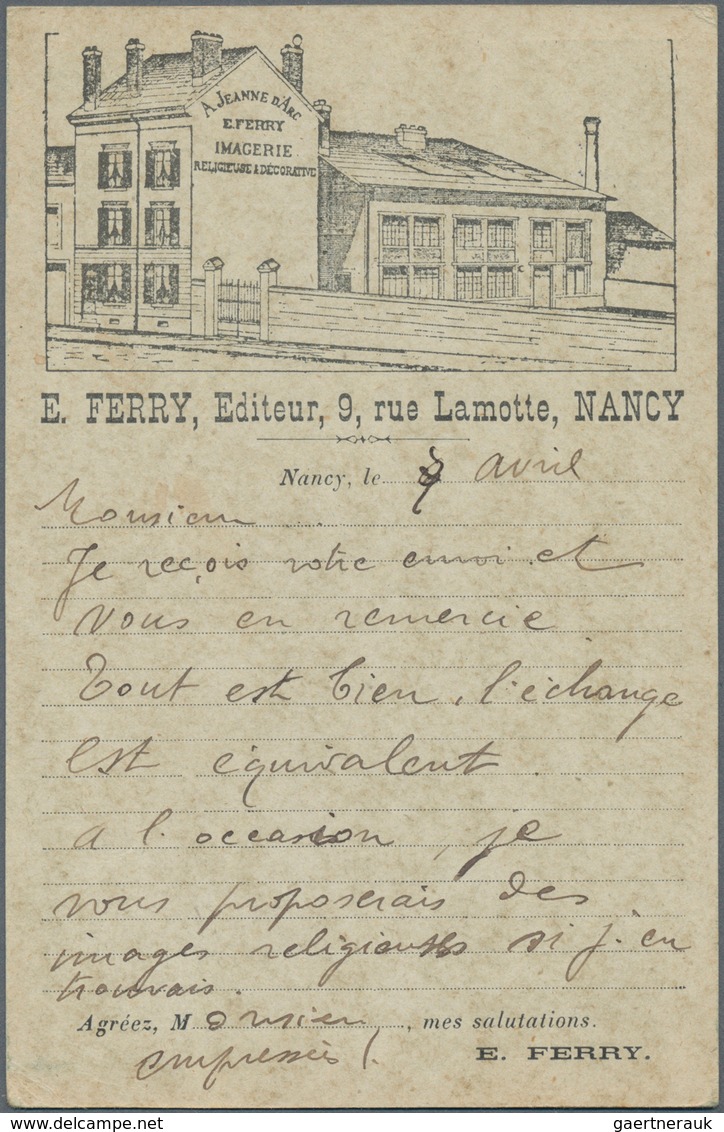 A JEANNE D'ARC
E. FERRY
IMAGERIE
RELIGIEUSE & DÉCORATIVE
E. FERRY, Editeur, 9, rue Lamotte, NANCY
Nancy, le 9 avril
Monsieur
Je reçois votre envoi et
vous en remercie
Tout est bien, l'échange
est équivalent.
A l'occasion, je
vous proposerais des
images religieuses si j'en
trouvais.
Agréez, Monsieur, mes salutations.
empressées
E. FERRY.
gaertnerauk